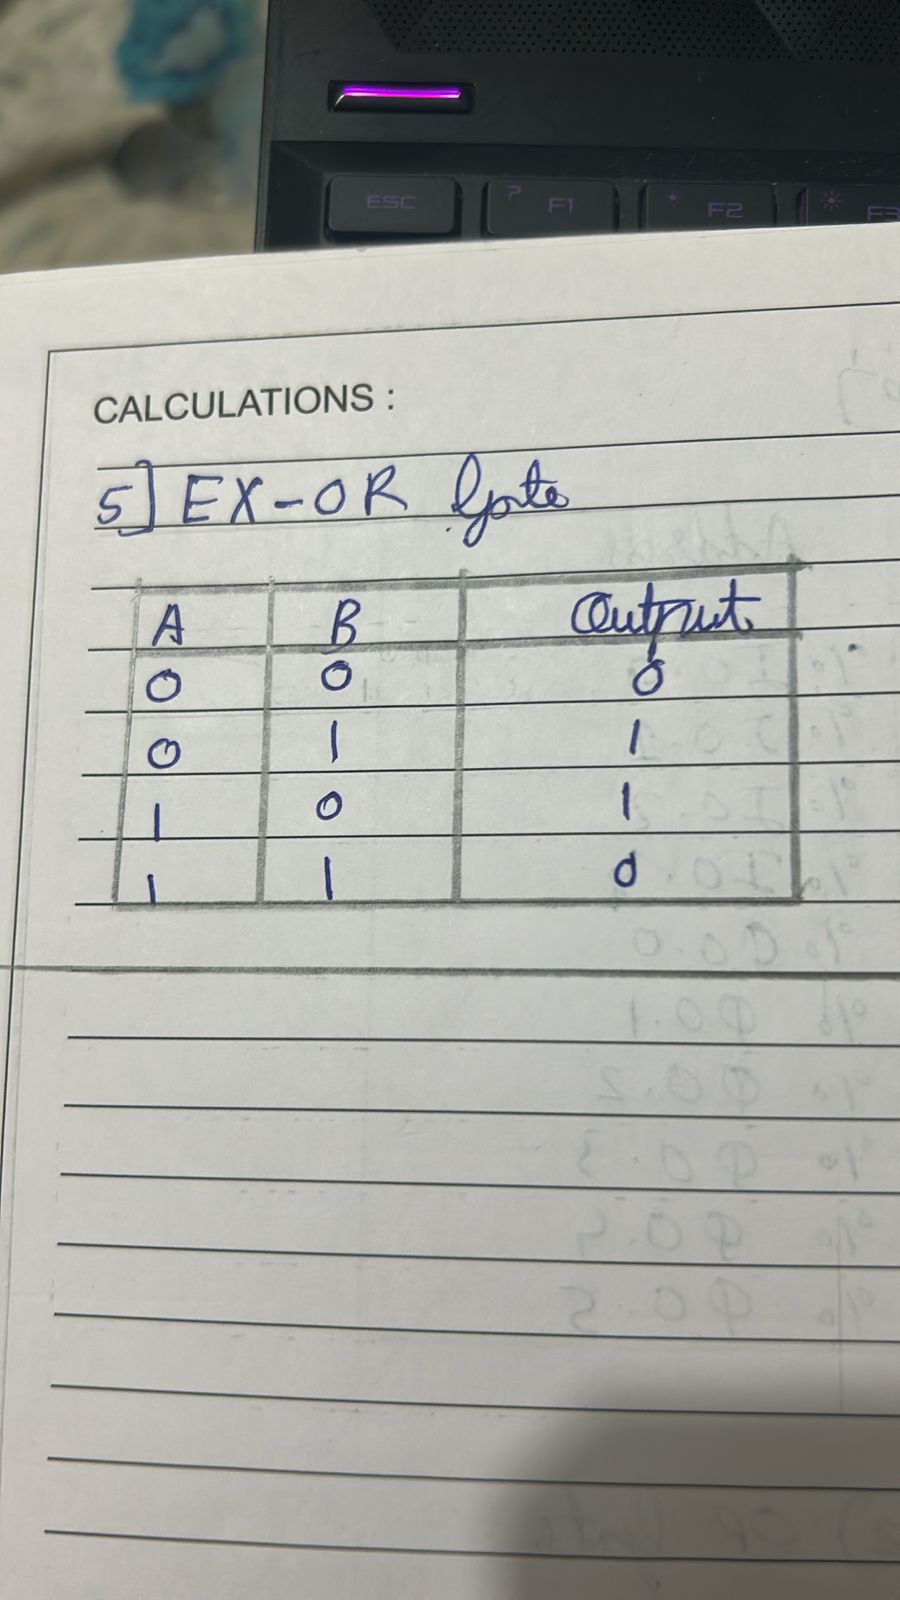 ESC ? F1 F2 F3
CALCULATIONS :
5] EX-OR Gate
A B Output
0 0 0
0 1 1
1 0 1
1 1 0